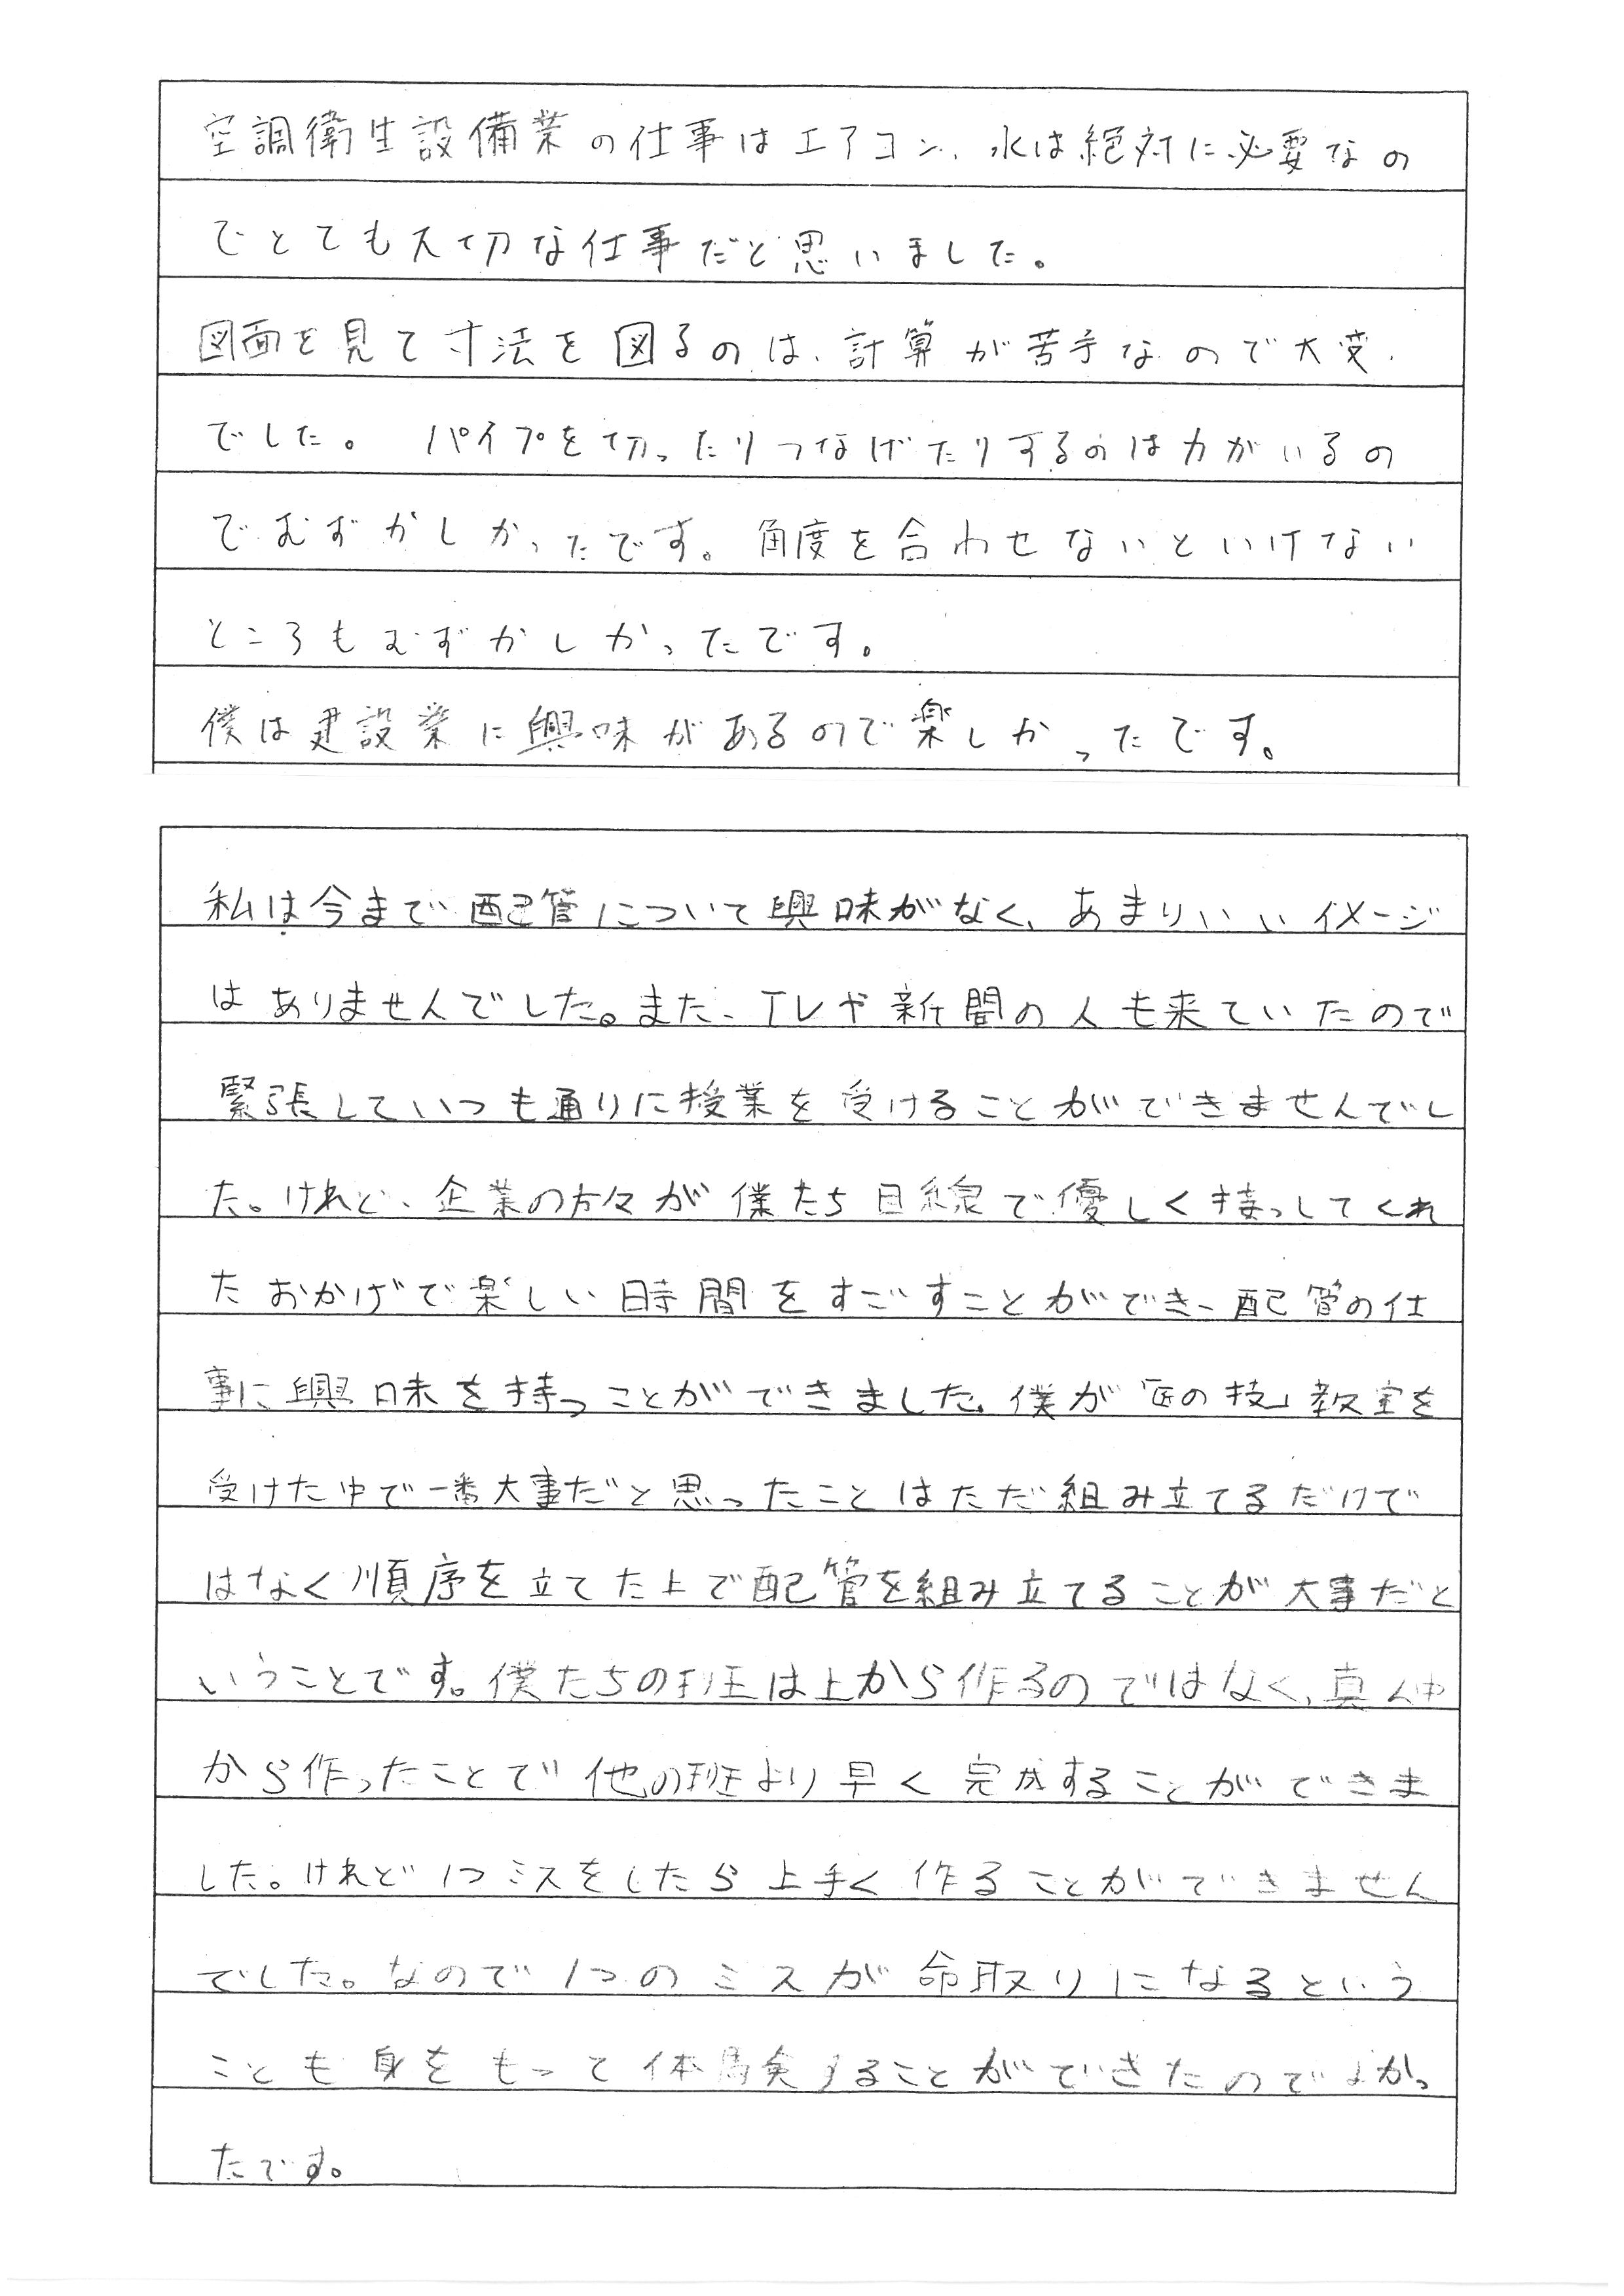 空調衛生設備業の仕事はエアコン、水は絶対に必要なの
でとても大切な仕事だと思いました。
図面を見て寸法を図るのは、計算が苦手なので大変
でした。 パイプを切ったりつなげたりするのは力がいるの
でむずかしかったです。角度を合わせないといけない
ところもむずかしかったです。
僕は建設業に興味があるので楽しかったです。
私は今まで配管について興味がなく、あまりいいイメージ
はありませんでした。また、TVや新聞の人も来ていたので
緊張していつも通りに授業を受けることができませんでし
た。けれど、企業の方々が僕たち目線で優しく接っしてくれ
たおかげで楽しい時間をすごすことができ、配管の仕
事に興味を持つことができました。僕が「匠の技」教室を
受けた中で一番大事だと思ったことはただ組み立てるだけで
はなく順序を立てた上で配管を組み立てることが大事だと
いうことです。僕たちの班は上から作るのではなく、真ん中
から作ったことで他の班より早く完成することができま
した。けれど1つミスをしたら上手く作ることができません
でした。なので1つのミスが命取りになるという
ことも身をもって体験することができたのでよかっ
たです。